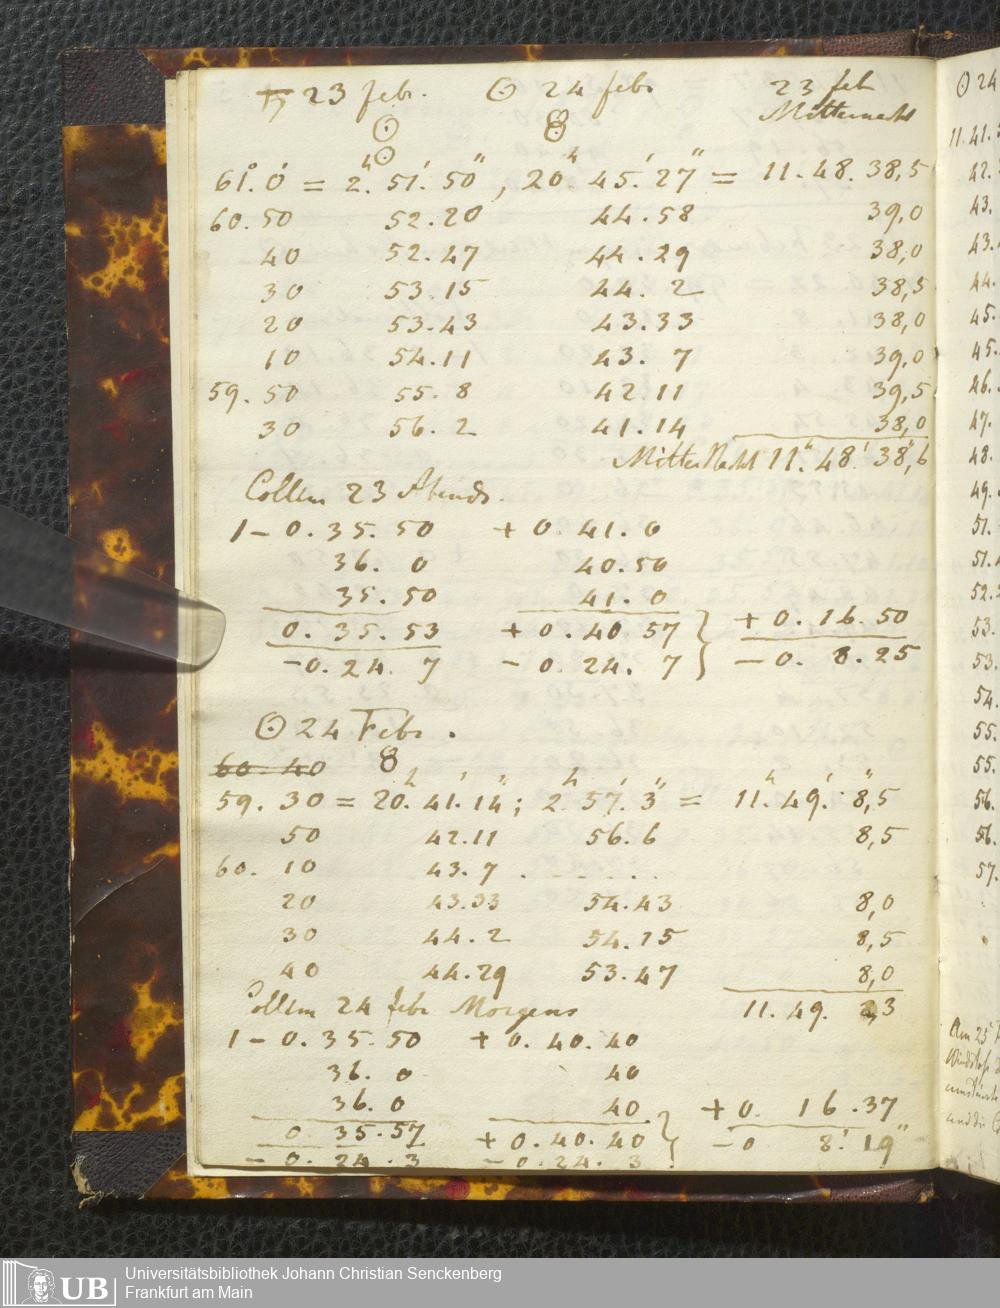 ♄ 23 febr. ☉ 24 febr 23 feb
☉ 8 Mitternacht
☉
61°. 0' = 2h. 51'. 50", 20h 45'. 27" = 11. 48. 38,5
60. 50 52. 20 44. 58 39,0
40 52. 47 44. 29 38,0
30 53. 15 44. 2 38,5
20 53. 43 43. 33 38,0
10 54. 11 43. 7 39,0
59. 50 55. 8 42. 11 39,5
30 56. 2 41. 14 38,0
MitterNacht 11h. 48' 38",6
Collim 23 Abends.
1 - 0. 35. 50 + 0. 41. 0
36. 0 40. 50
35. 50 41. 0
0. 35. 53 + 0. 40. 57 } + 0. 16. 50
- 0. 24. 7 - 0. 24. 7 - 0. 8. 25
☉ 24 Febr.
60. 40 8
59. 30 = 20h. 41'. 14"; 2h 57'. 3" = 11h. 49'. 8",5
50 42. 11 56. 6 8,5
60. 10 43. 7 . . . . .
20 43. 33 54. 43 8,0
30 44. 2 54. 15 8,5
40 44. 29 53. 47 8,0
Collim 24 febr Morgens 11. 49. 3
1 - 0. 35. 50 + 0. 40. 40
36. 0 40
36. 0 40
0. 35. 57 + 0. 40. 40 } + 0. 16. 37
- 0. 24. 3 - 0. 24. 3 - 0 8' 19"
☉ 24
11. 41.
42.
43.
43.
44.
45.
45.
46.
47.
48.
49.
51.
51.
52.
53.
53.
54.
55.
55.
56.
56.
57.
Am 25
UB
Universitätsbibliothek Johann Christian Senckenberg
Frankfurt am Main